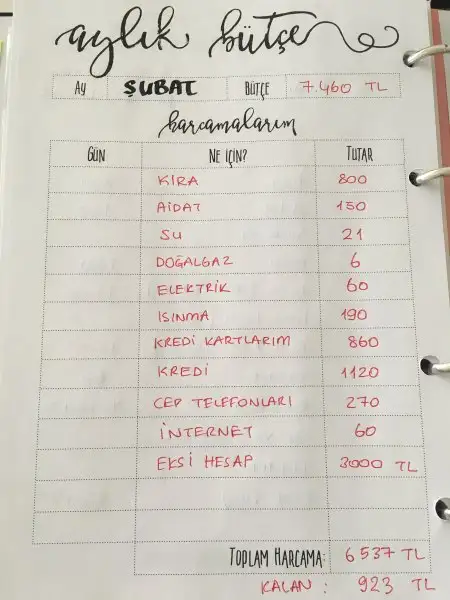 aylık bütçe
Ay ŞUBAT BÜTÇE 7.460 TL
harcamalarım
GÜN NE İÇİN? TUTAR
KIRA 800
AİDAT 150
SU 21
DOĞALGAZ 6
ELEKTRİK 60
ISINMA 190
KREDİ KARTLARIM 860
KREDİ 1120
CEP TELEFONLARI 270
İNTERNET 60
EKSİ HESAP 3000 TL
TOPLAM HARCAMA: 6537 TL
KALAN : 923 TL